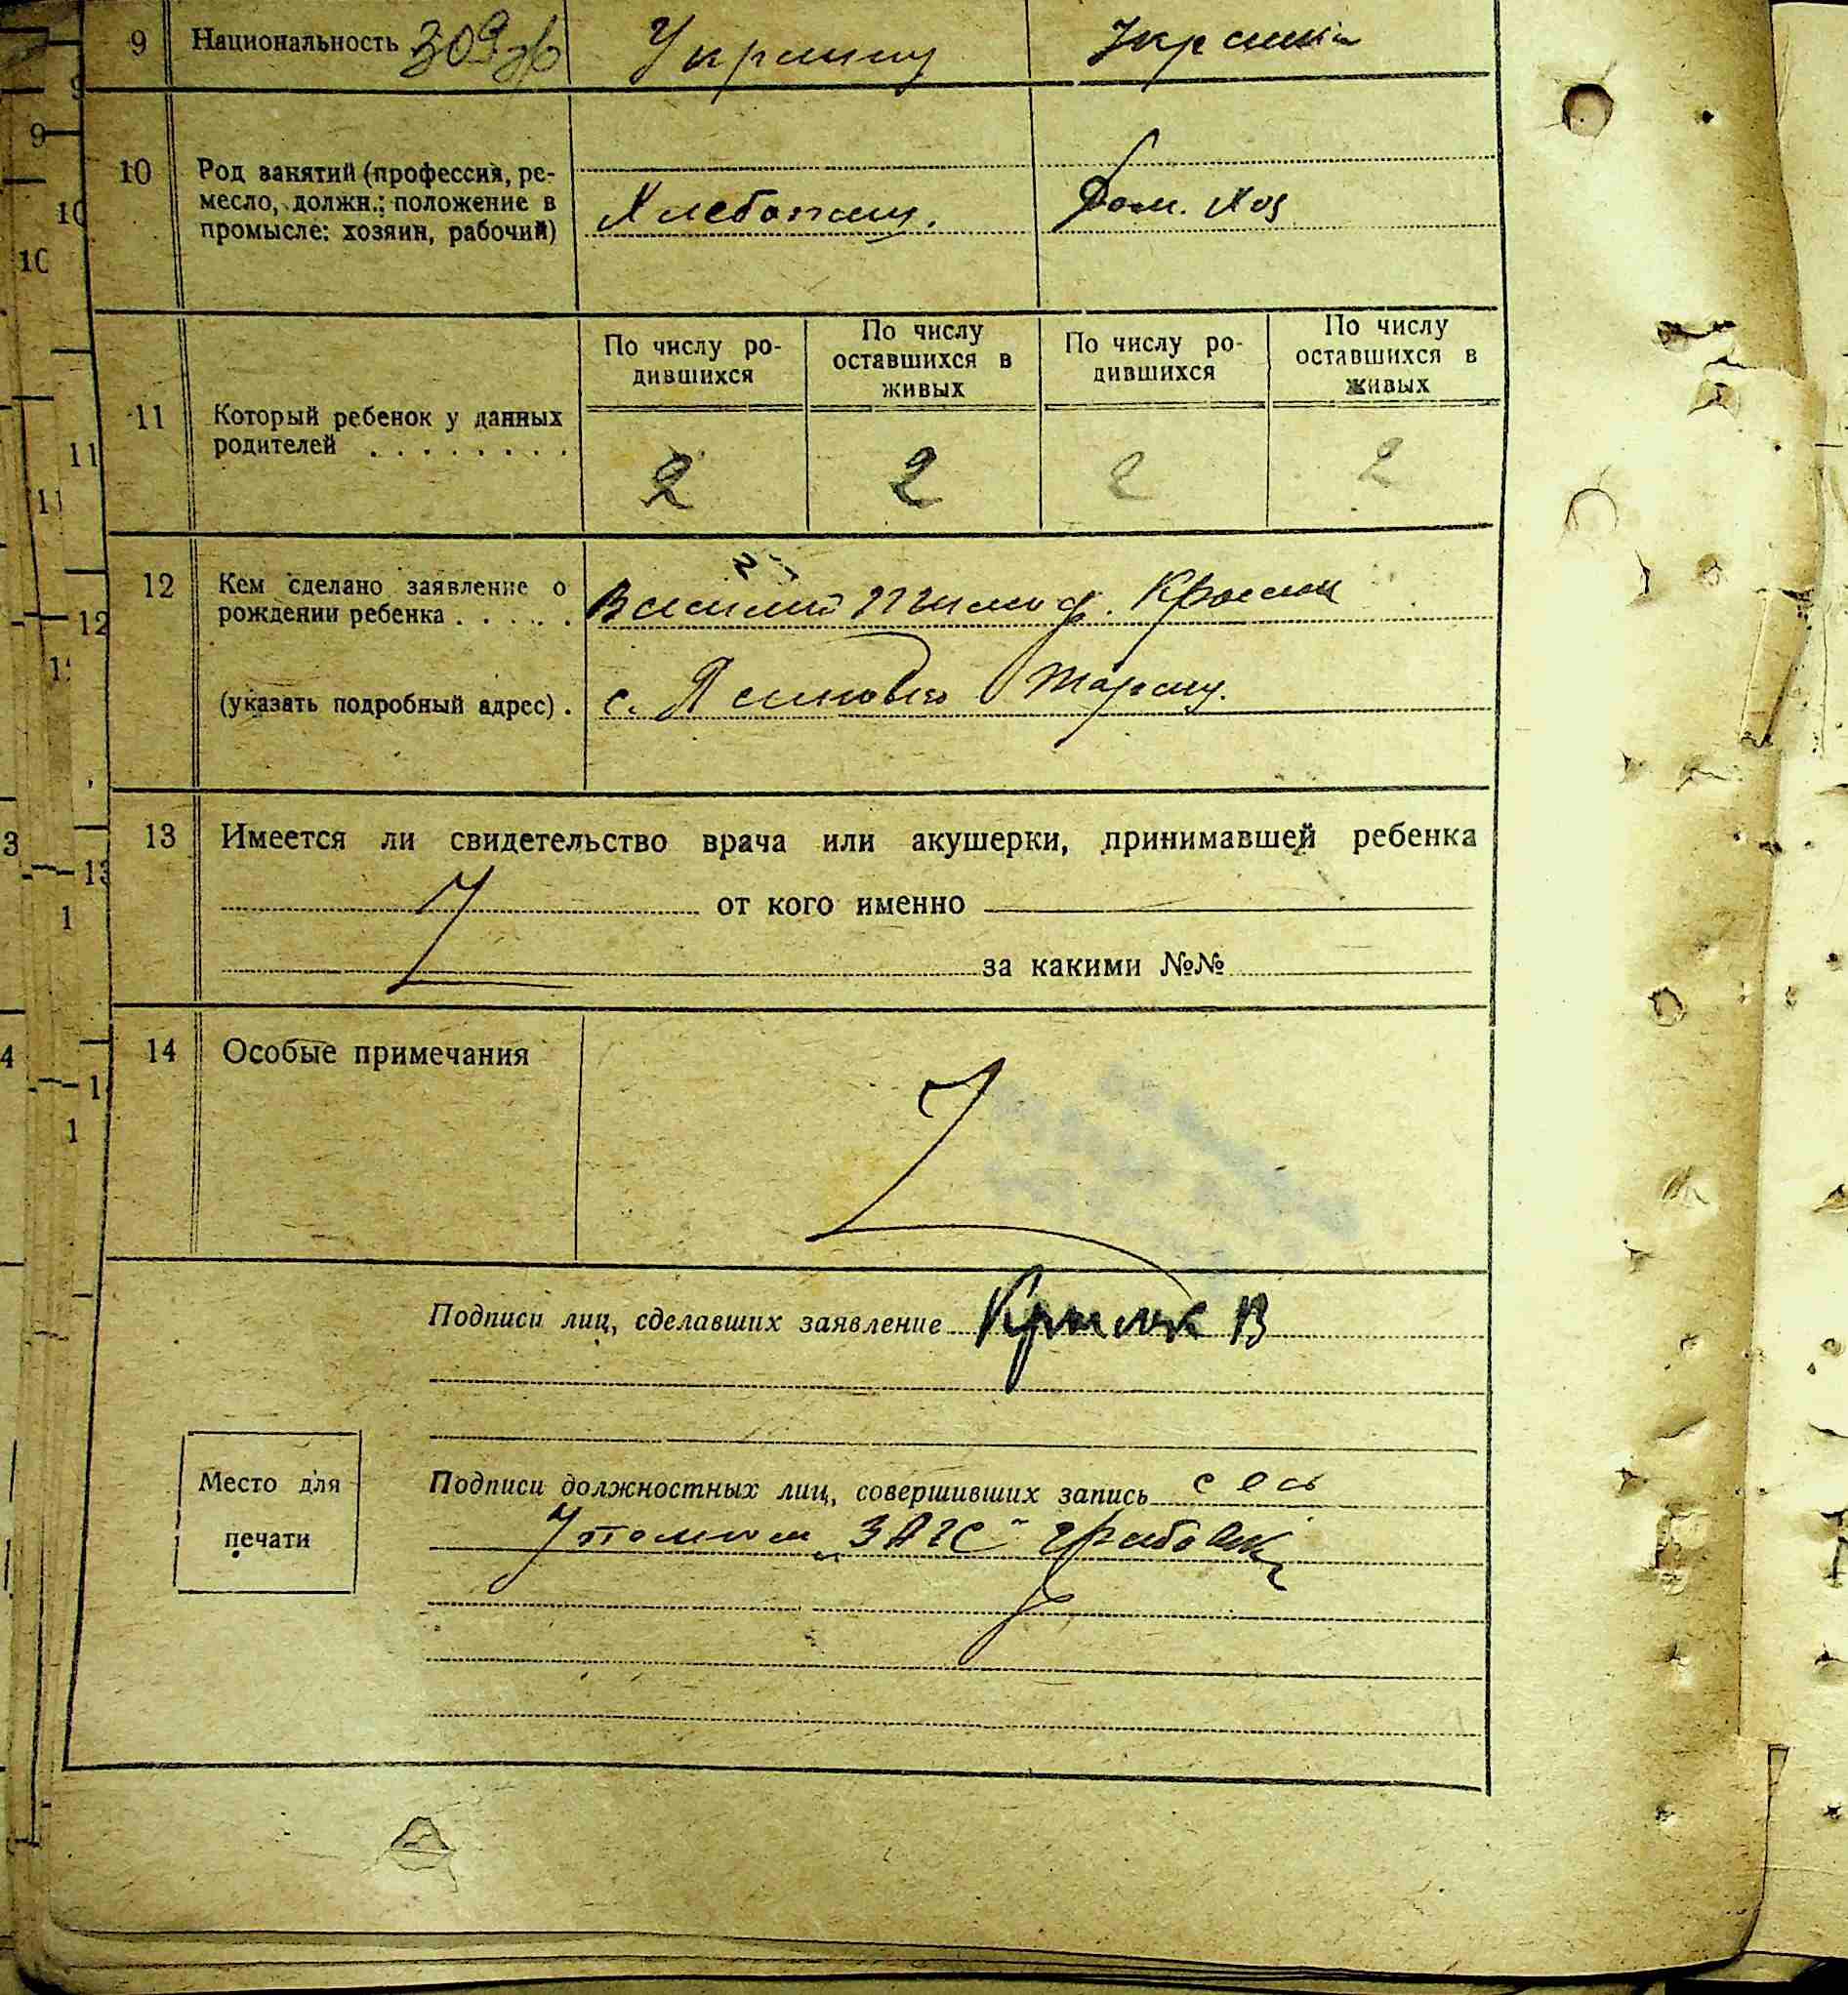 9 Национальность Украинец Украинка
10 Род занятий (профессия, ре-
месло, должн.; положение в
промысле: хозяин, рабочий)
Хлебопашец. Дом. Хоз
По числу ро-
дившихся
По числу
оставшихся в
живых
По числу ро-
дившихся
По числу
оставшихся в
живых
11 Который ребенок у данных
родителей . . . . . . . .
2 2 2 2
12 Кем сделано заявление о
рождении ребенка . . . . .
Василий Тимоф.
(указать подробный адрес) .
с.
13 Имеется ли свидетельство врача или акушерки, принимавшей ребенка
от кого именно
за какими №№
14 Особые примечания
Подписи лиц, сделавших заявление В
Место для
печати
Подписи должностных лиц, совершивших запись
ЗАГС